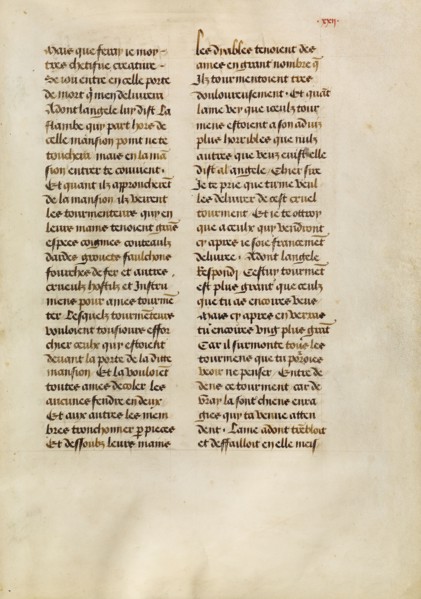 .xxii.
Mais que feray ie moy
tres chetifue creature
Se iou entre en celle porte
de mort q̄ men deliurera
Adont langele luy dist La
flambe quy part hors de
celle mansion point ne te
touchera mais en la mā
sion entrer te conuient.
Et quant ilz approcherēt
de la mansion ilz veirent
les tourmenteurs quy en
leurs mains tenoient grās
espees coigniees couteaulz
dardes grouetz faulchons
fourches de fer et autres
crueulz hostilz et Instru
mens pour ames tourmē
ter Lesquelz tourmēteurs
vouloient tousiours effor
chier ceulx quy estoient
deuant la porte de la ditte
mansion Et la vouloiēt
toutes ames decoler les
aucunes fendre en deux
Et aux autres les mem
bres tronchonner p̄ pieces
Et dessoubz leurs mains
les diables tenoient des
ames en grant nombre q̄
Ilz tourmentoient tres
douloureusement. Et quāt
lame vey que ceulz tour
mens estoient a son aduis
plus horribles que nulz
autres que veus euist elle
dist al angele. Chier sire
Je te prie que tu me veul
les deliurer de cest cruel
tourment. Et ie te ottroy
que a ceulx quy vendront
cy apres ie soie francemēt
deliure. Adont langele
Respondi Cestuy tourmēt
est plus grant que ceulz
que tu as encoires veus
Mais cy apres en verras
tu encoires vng plus grāt
Car il surmonte tous les
tourmens que tu poroies
veoir ne penser Entre de
dens ce tourment car de
vray la sont chiens enra
gies quy ta venue atten
dent. Lame adont trēbloit
et deffailloit en elle meis